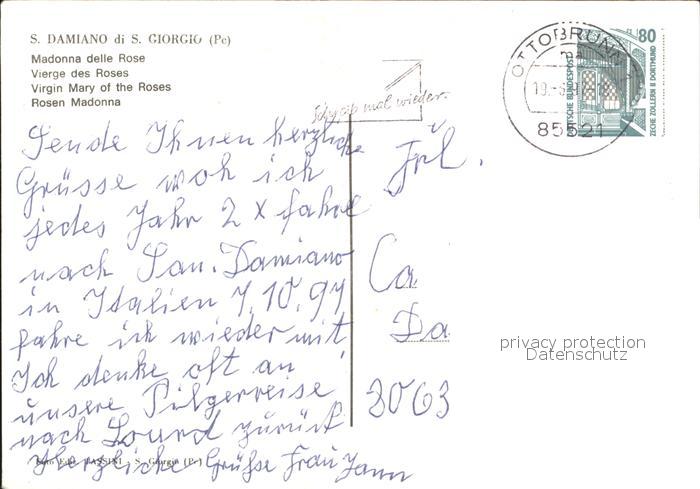 S. DAMIANO di S. GIORGIO (Pc)
Madonna delle Rose
Vierge des Roses
Virgin Mary of the Roses
Rosen Madonna
Schreib mal wieder.
OTTOBRUNN
85521
80
DEUTSCHE BUNDESPOST
ZECHE ZOLLERN II DORTMUND
Sende Ihnen herzliche
Grüsse woh ich
jedes Jahr 2 x fahre
nach San. Damiano
in Italien 7.10.94
fahre ich wieder mit
Ich denke oft an
unsere Pilgerreise
nach Lourd zurück
Herzliche Grüße Frau
Frl.
Ca
Da
8063
privacy protection
Datenschutz
S. Giorgio (Pc)